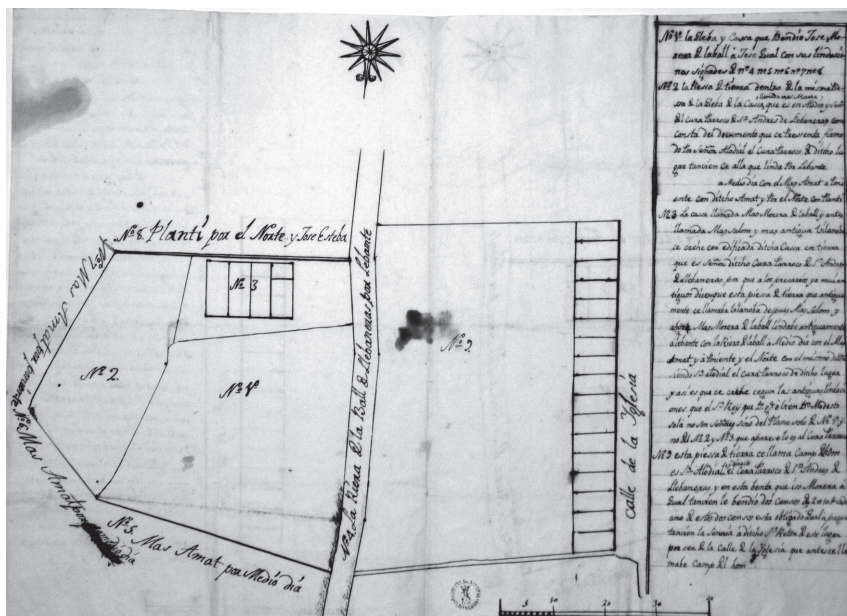 Nº 8. Plantí por el Norte y Jose Esteba
Nº 7. Mas Amat por poniente
Nº 6. Mas Amat por medio dia
Nº 5. Mas Amat por Medio dia
Nº 4. La Riera de la Ball de Llebaneras por Lebante
Nº 3
Nº 2.
Nº 1º
Nº 9.
calle de la Yglesia
5 10 20 30
Nº 1º la Pleba y Cassa que Bendió Jose Mo-
rera de laball á Jose Gual con sus lindacio
nes signades de nº 4 nº 5 nº 6 nº 7 nº 8
Nº 2 la Piessa de tierra dentro de la misma Pie-
llamada mas Morera
ssa de la Pleba de la Cassa, que es en Alodio y Señor
del cura Parroco de Sn Andres de Llebaneras como
consta del documento que se presenta firma
do por Señor Alodial el Cura Parroco de ditcho lu
gar tanvien se alla que linda por Lebante
a Medio dia con el Mas Amat a Poni
ente con ditcho Amat y Por el Norte con Plantí
Nº 3 La casa llamada Mas Morera de laball y antes
llamada Mas Salom y mas antigua Vilanoba
se cache con edificada ditcha Cassa en tierra
que es Señor ditcho Cura Parroco de Sn Andres
de Llebaneras, por que a los precarios ya mui an
tiguos dicen que esta piessa de tierra que antigua
mente se llamaba Vilanoba despues Mas Salomo, y
ahora Mas Morera de laball lindaba antiguamente
a lebante con la Riera de laball á Medio dia con el Mas
Amat y á Poniente y el Norte con el mismo
siendo Sr alodial el cura Parroco de ditcho lugar
y asi es que se cache segun las antiguas lindaci
ones que el Sr Rey que D. g. ó bien Dn Modesto
solá no son Señores sino del Plano solo de Nº 1º y
no del Nº 2 y Nº 3 que aparese lo es el Cura Parroco
Nº 9 esta piessa de tierra se llama Camp del hom
es Sr Alodial el Cura Parroco de Sn Andres de
Llebaneras, y en esta benta que iso Morera á
Gual tanvien le bendió dos censos de cada
ano de estos dos censos esta obligado Gual a pagar
tanvien la Senoria á ditcho Sr Retor de este lugar
por cer de la calle de la Yglesia que antes se lla
maba Camp del hom